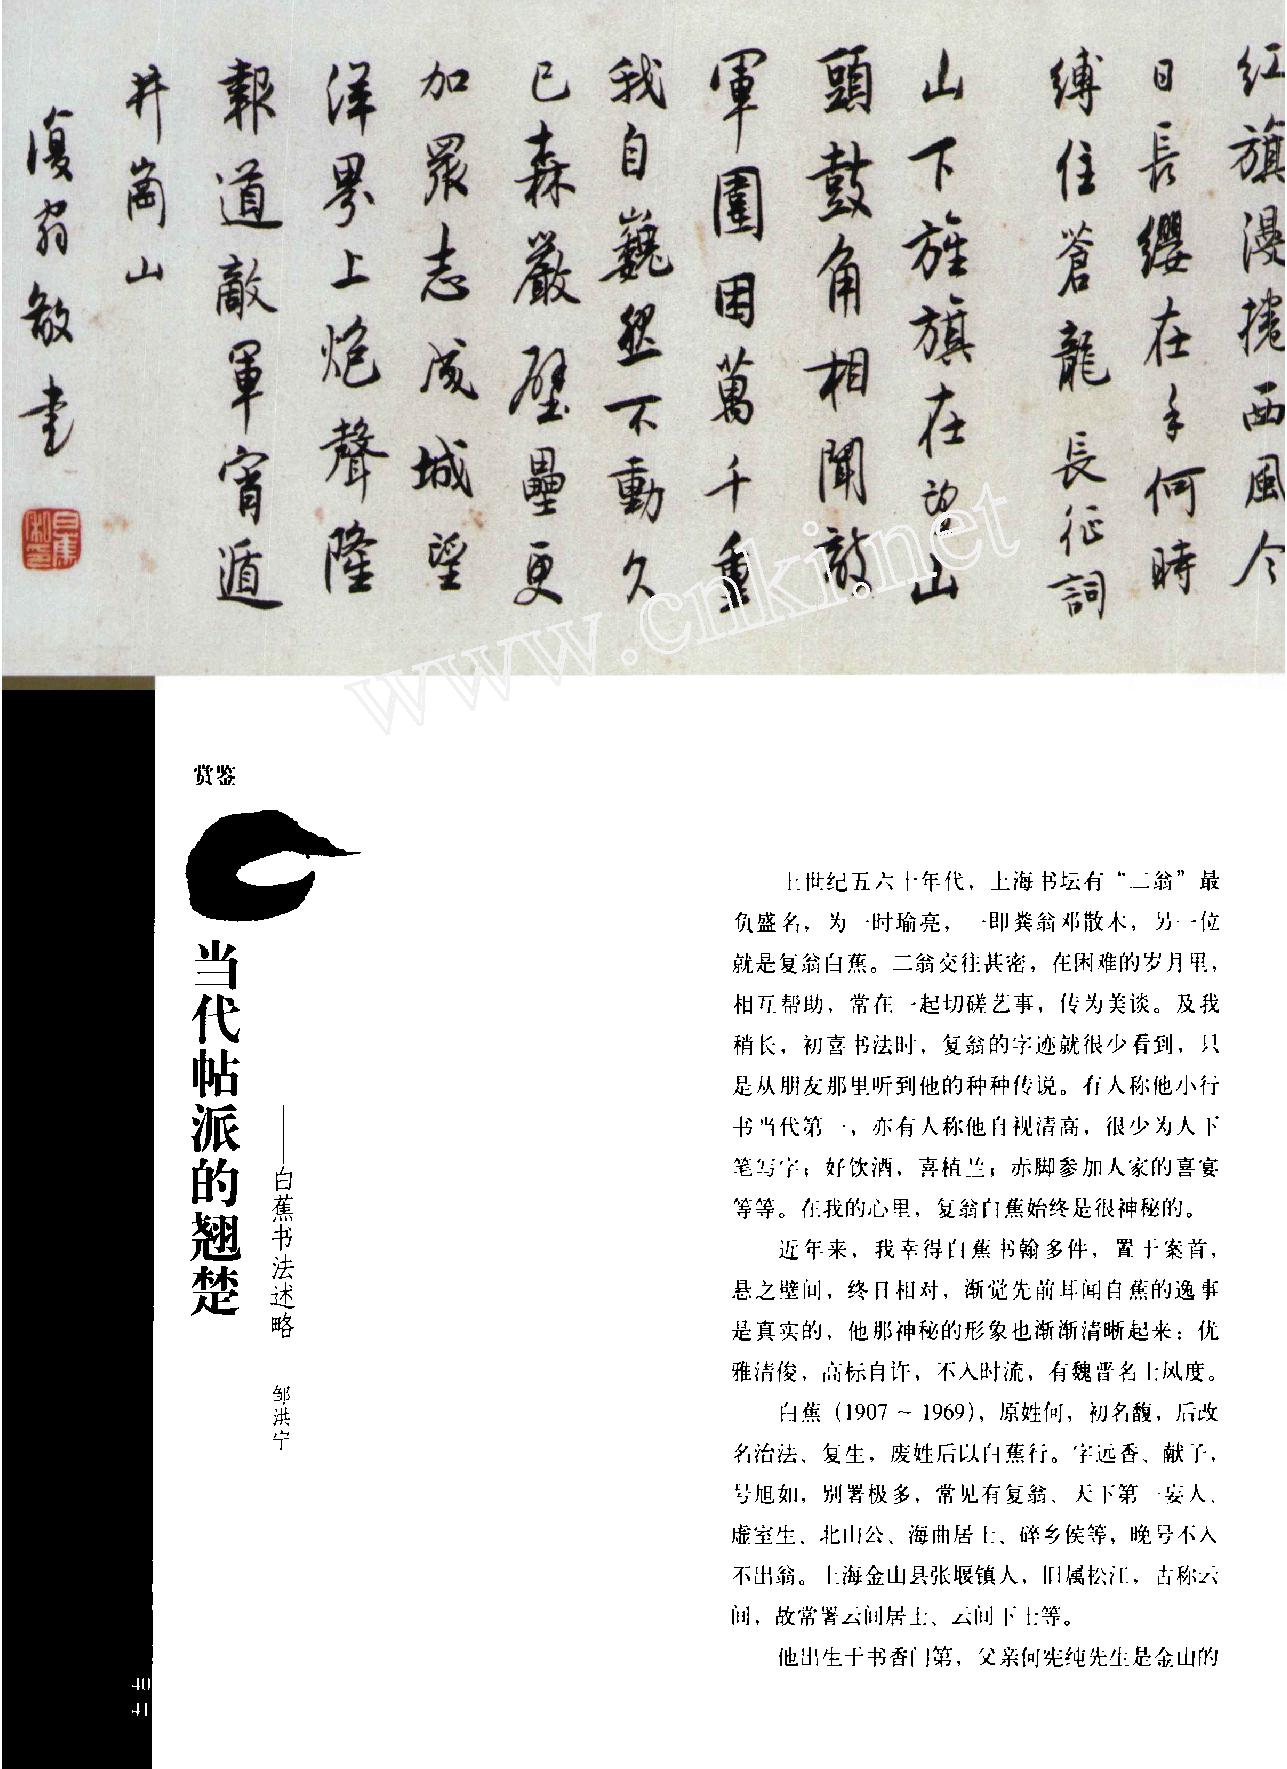 红旗漫捲西風今
日長纓在手何時
縛住蒼龍 長征詞
山下旌旗在望山
頭鼓角相聞敵
軍圍困萬千重
我自巍然不動久
已森嚴壁壘更
加眾志成城望
洋界上炮聲隆
報道敵軍宵遁
井崗山
復翁敬書
www.cnki.net
赏鉴
当代帖派的翘楚
——白蕉书法述略
邹洪宁
上世纪五六十年代，上海书坛有“二翁”最
负盛名，为一时瑜亮，一即粪翁邓散木，另一位
就是复翁白蕉。二翁交往甚密，在困难的岁月里，
相互帮助，常在一起切磋艺事，传为美谈。及我
稍长，初喜书法时，复翁的字迹就很少看到，只
是从朋友那里听到他的种种传说。有人称他小行
书当代第一，亦有人称他自视清高，很少为人下
笔写字；好饮酒，喜植兰；赤脚参加人家的喜宴
等等。在我的心里，复翁白蕉始终是很神秘的。
近年来，我幸得白蕉书翰多件，置于案首，
悬之壁间，终日相对，渐觉先前耳闻白蕉的逸事
是真实的，他那神秘的形象也渐渐清晰起来：优
雅清俊，高标自许，不入时流，有魏晋名士风度。
白蕉（1907～1969），原姓何，初名馥，后改
名治法、复生，废姓后以白蕉行。字远香、献子，
号旭如，别署极多，常见有复翁、天下第一妄人、
虚室生、北山公、海曲居士、碎乡侯等，晚号不入
不出翁。上海金山县张堰镇人，旧属松江，古称云
间，故常署云间居士、云间下士等。
他出生于书香门第，父亲何宪纯先生是金山的